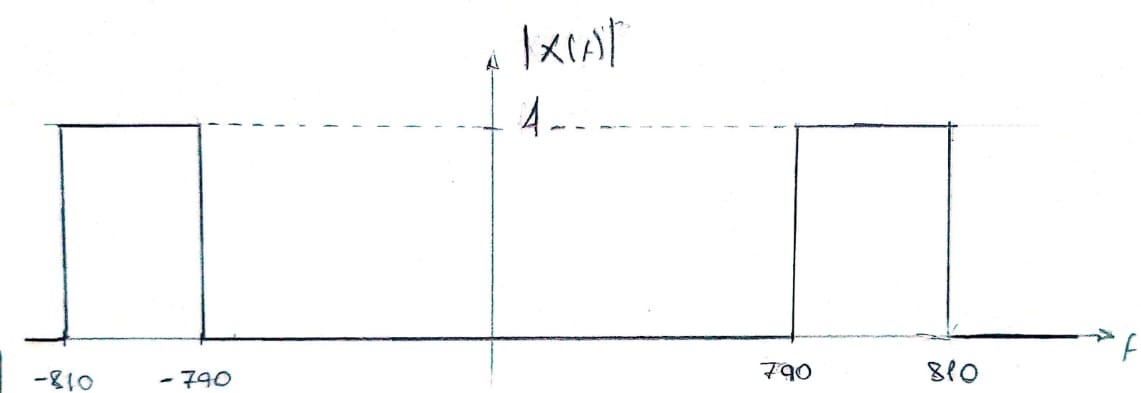 |X(f)|
1
-810 -790 790 810 f